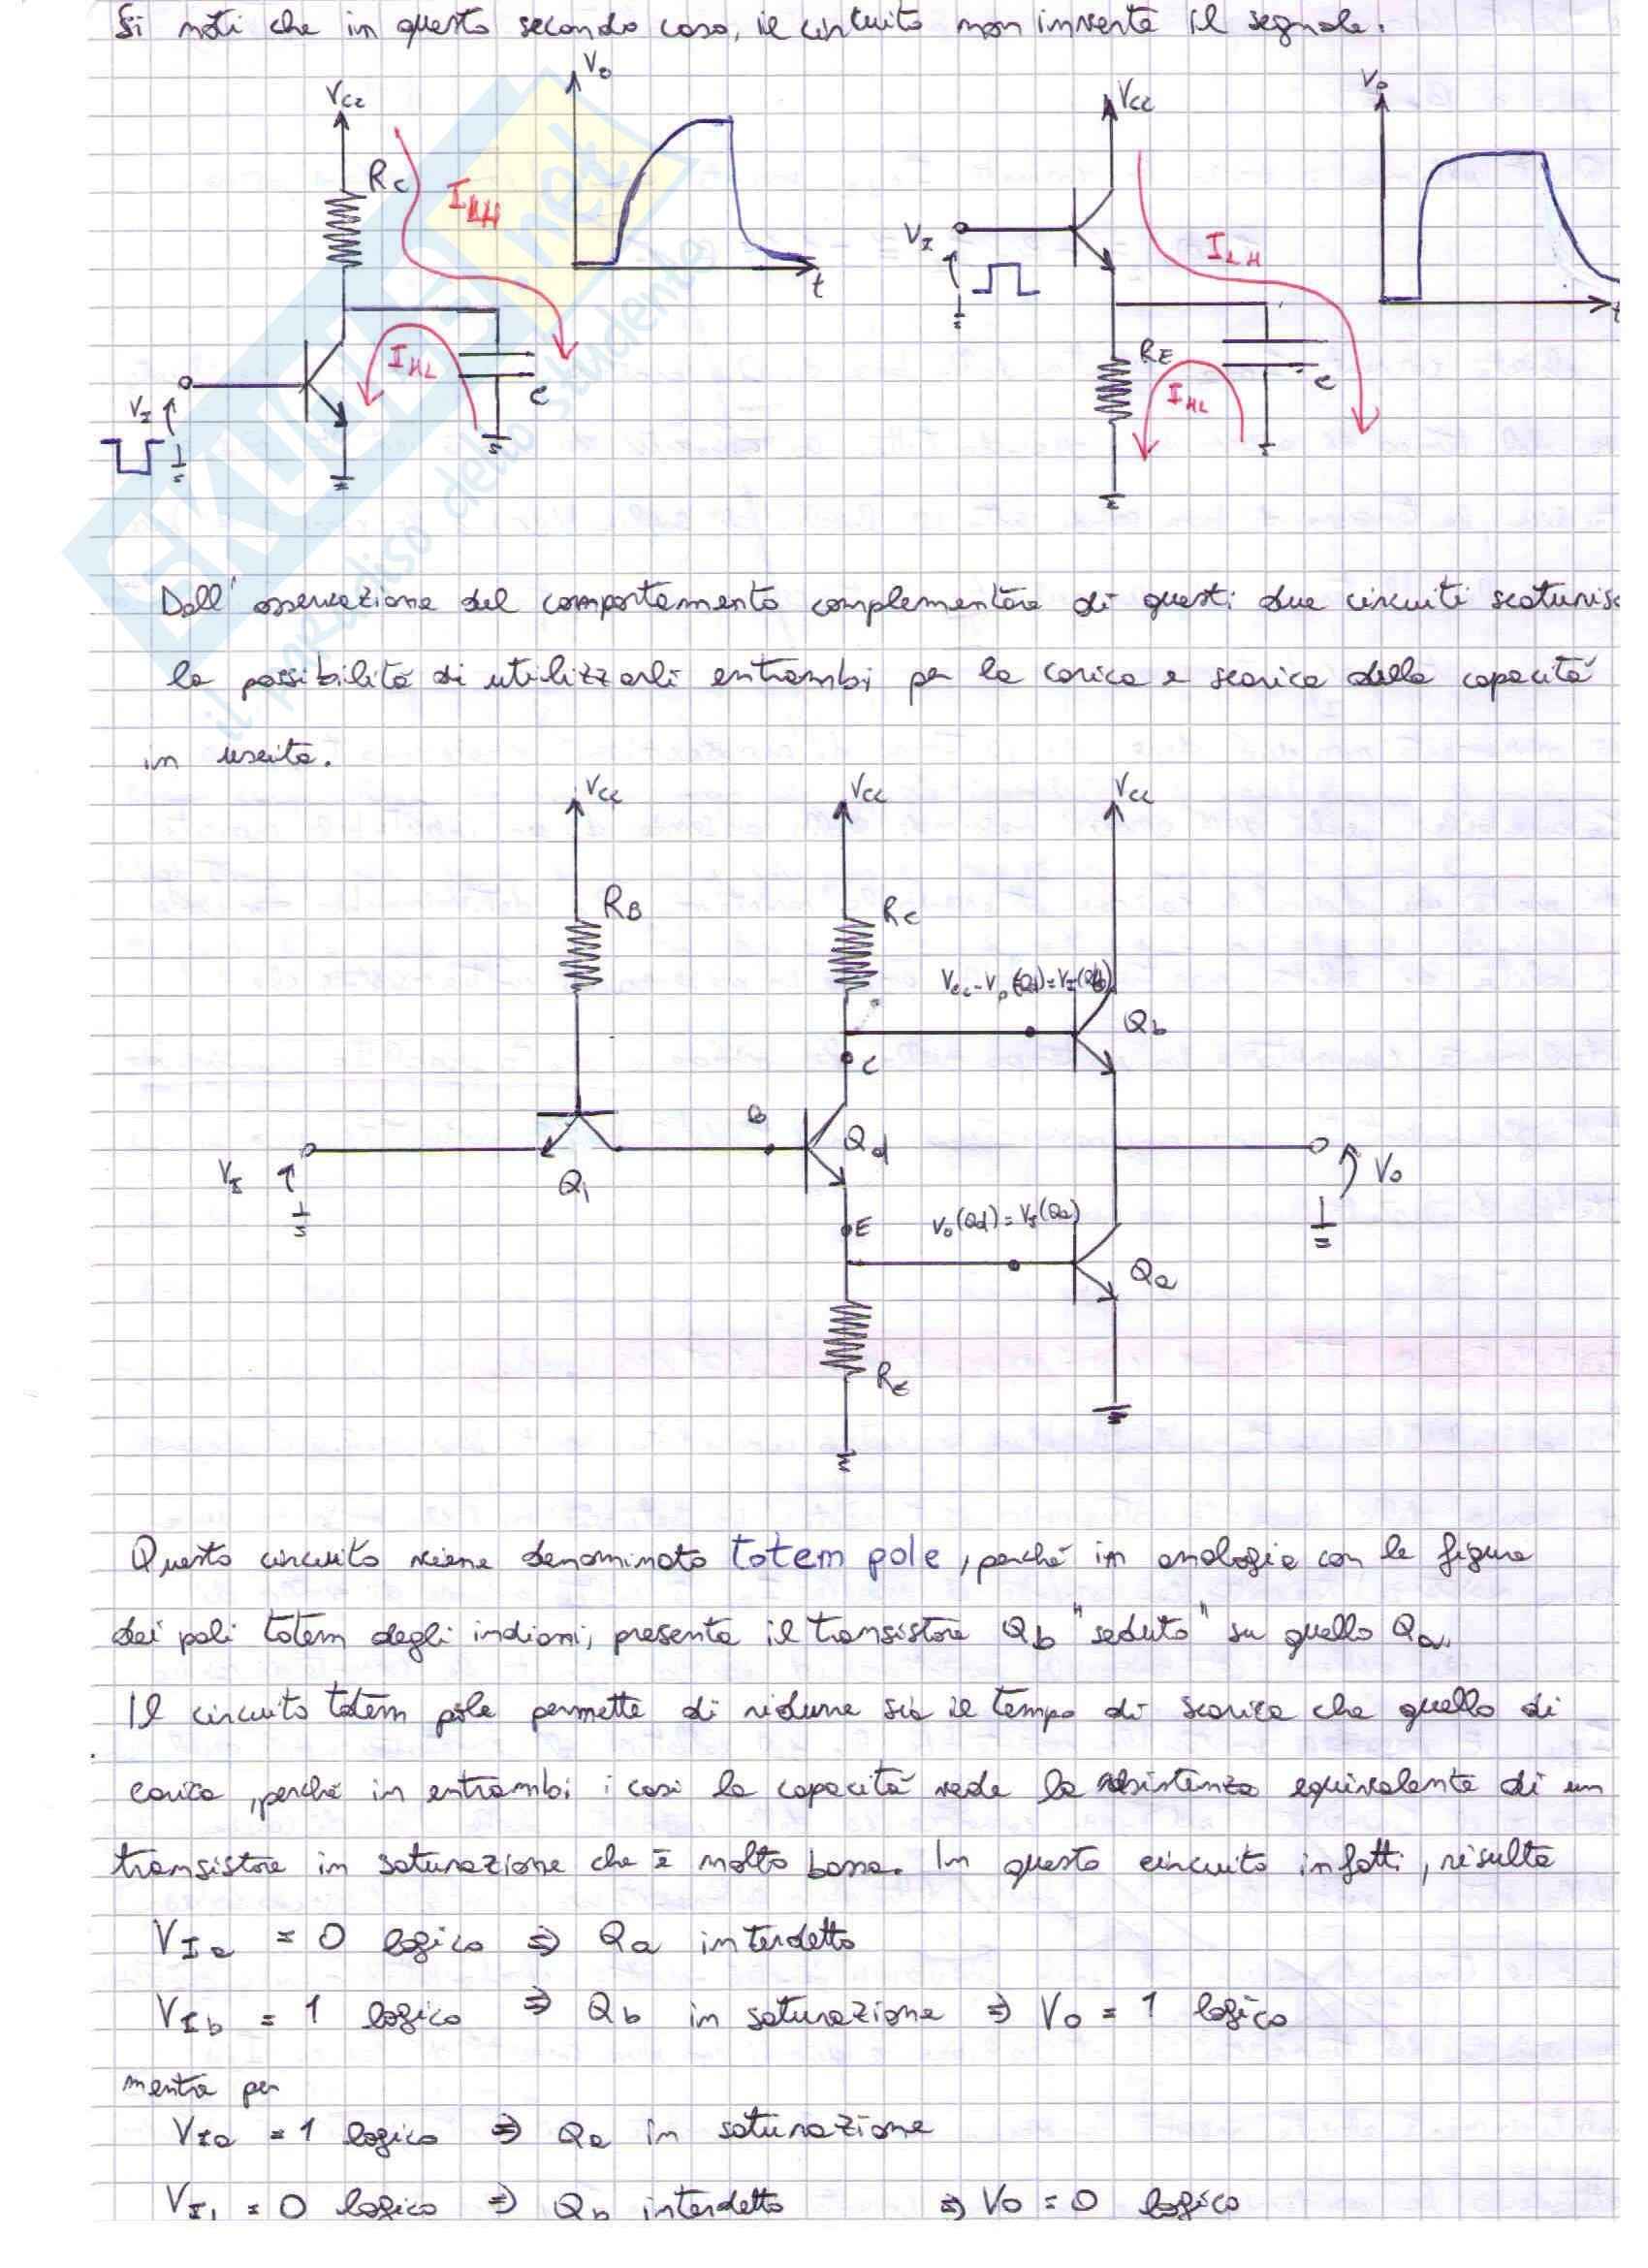 Si noti che in questo secondo caso, il circuito non inverte il segnale.
Vcc
Vo
Vcc
Vo
RC
ILH
VI
ILH
t
IHL
RE
t
VI
C
IHL
C
EKUNS.net
il paradiso dello studente
Dall'osservazione del comportamento complementare di questi due circuiti scaturisc
la possibilità di utilizzarli entrambi per la carica e scarica della capacità
in uscita.
Vcc
Vcc
Vcc
RB
RC
Vcc-Vo(Qd)=VI(Qb)
Qb
C
B
Qd
VI
Q1
Vo
E
Vo(Qd)=VI(Qa)
Qa
RE
Questo circuito viene denominato totem pole, perché in analogia con la figura
dei pali totem degli indiani, presenta il transistore Qb "seduto" su quello Qa.
Il circuito totem pole permette di ridurre sia il tempo di scarica che quello di
carica, perché in entrambi i casi la capacità vede la resistenza equivalente di un
transistore in saturazione che è molto bassa. In questo circuito infatti, risulta
VIa = 0 logico ⇒ Qa interdetto
VIb = 1 logico ⇒ Qb in saturazione ⇒ Vo = 1 logico
mentre per
VIa = 1 logico ⇒ Qa in saturazione
VIb = 0 logico ⇒ Qb interdetto ⇒ Vo = 0 logico